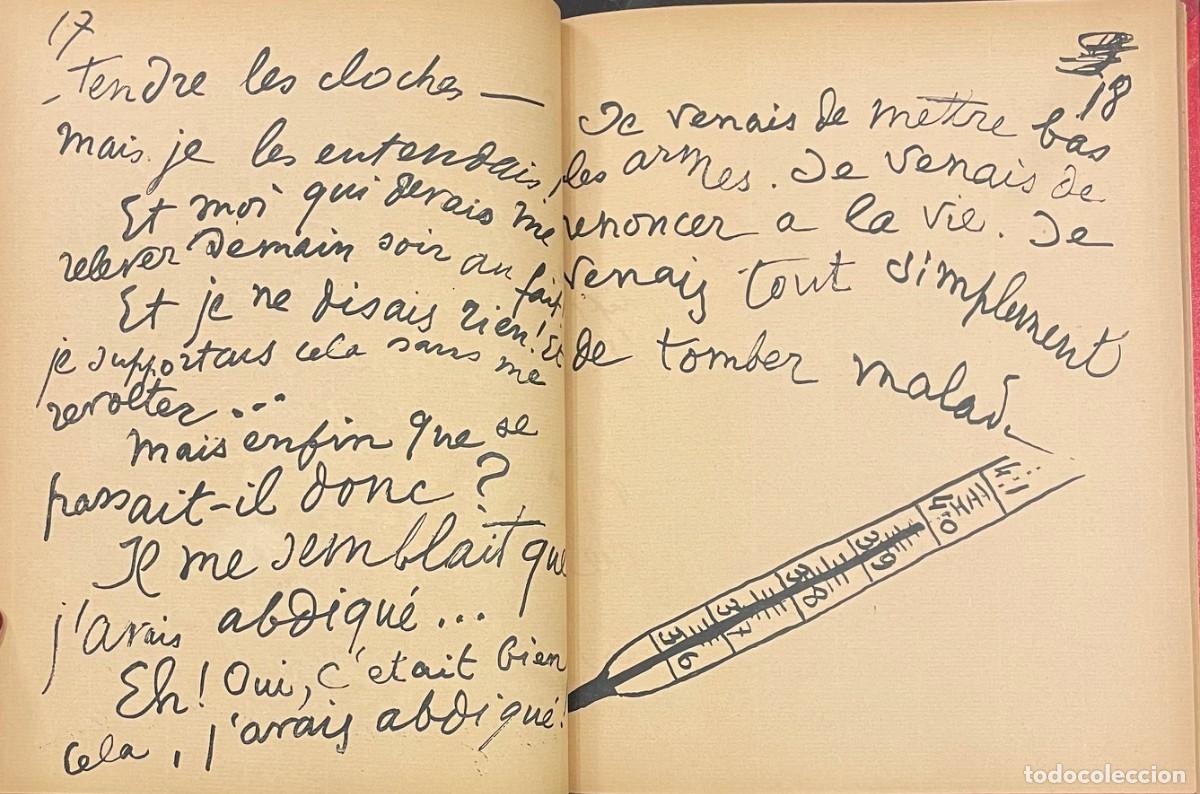 17
tendre les cloches —
mais je les entendais,
Et moi qui devais me
relever demain soir au fait!
Et je ne disais rien! Et
je supportais cela sans me
revolter...
Mais enfin que se
passait-il donc?
Il me semblait que
j'avais abdiqué...
Eh! Oui, c'etait bien
cela, j'avais abdiqué!
18
Je venais de mettre bas
les armes. Je venais de
renoncer a la vie. Je
venais tout simplement
de tomber malad
36
37
38
39
40
41
todocoleccion